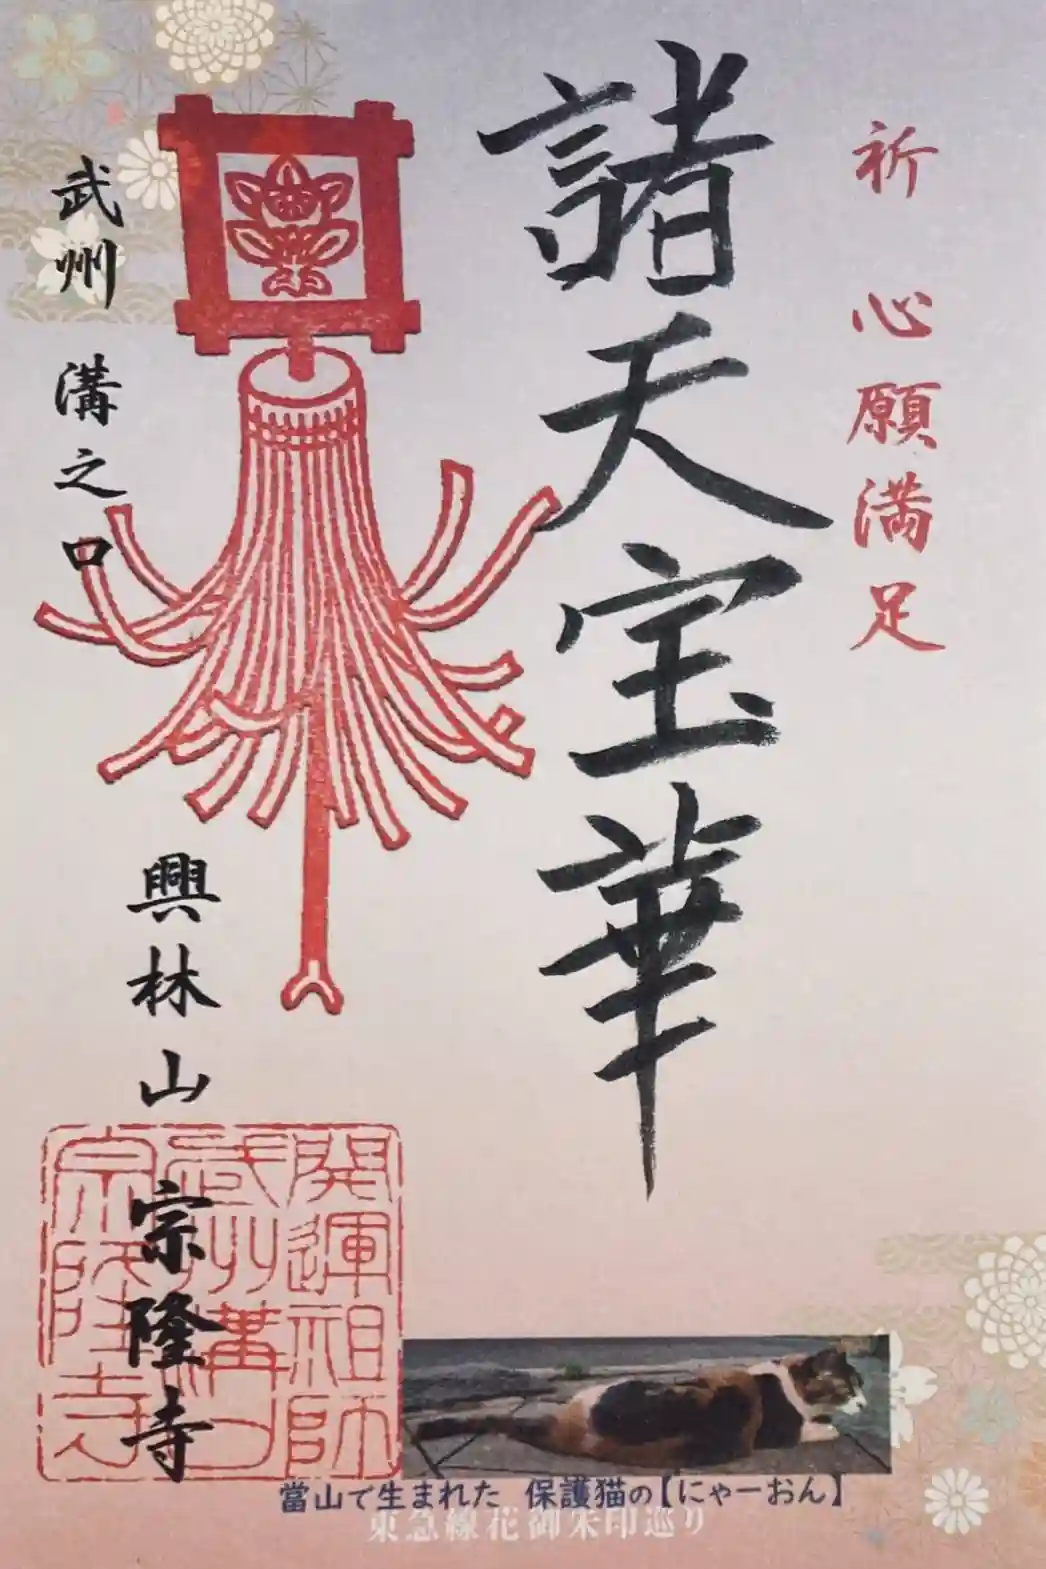 祈 心願満足
諸天宝華
武州 溝之口
興林山
宗隆寺
開運祖師
武州溝口
宗隆寺
當山で生まれた 保護猫の【にゃーおん】
東急線花御朱印巡り